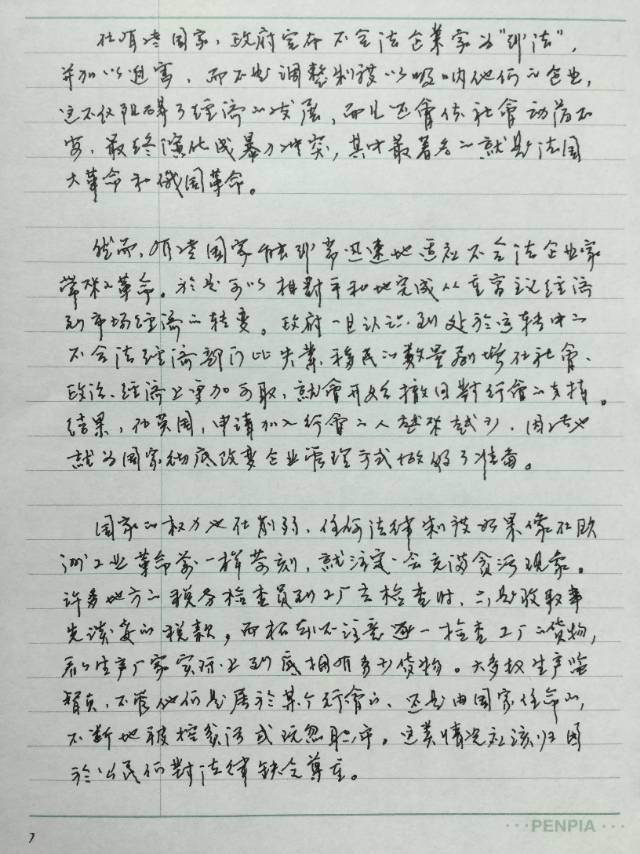 在有些国家，政府宣布不合法企业家为“非法”，
并加以迫害，而不是调整制度以吸纳他们的企业，
这不仅阻碍了经济的发展，而且还會使社會动荡不
安，最终演化成暴力冲突，其中最著名的就是法国
大革命和俄国革命。
然而，有些国家能非常迅速地适应不合法企业家
带来的革命。於是可以相對平和地完成从重商主义经济
到市场经济的转变。政府一旦认识到处於运转中的
不合法经济部门比失業移民的数量剧增在社會、
政治、经济上更加可取，就會开始撤回對行會的支持。
结果，在英国，申请加入行會的人越来越少，因此也
就为国家彻底改变企业管理方式做好了准备。
国家的权力也在削弱。任何法律制度如果像在欧
洲工业革命前一样苛刻，就注定會充满贪污现象。
许多地方的税务检查员到工厂去检查时，只是收取事
先谈妥的税款，而植本不注意逐一检查工厂的货物，
看生产厂家实际上到底拥有多少货物。大多数生产监
督员，不管他们是属於某个行會的，还是由国家任命的，
不断地被控贪污或玩忽职守。这类情况应该归因
於公民们對法律缺乏尊重。
PENPIA
7